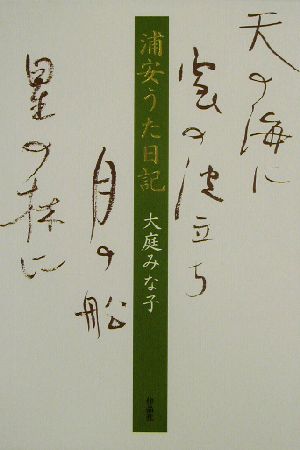 天の海に
雲の波立ち
月の船
星の林に
浦安うた日記
大庭みな子
作品社